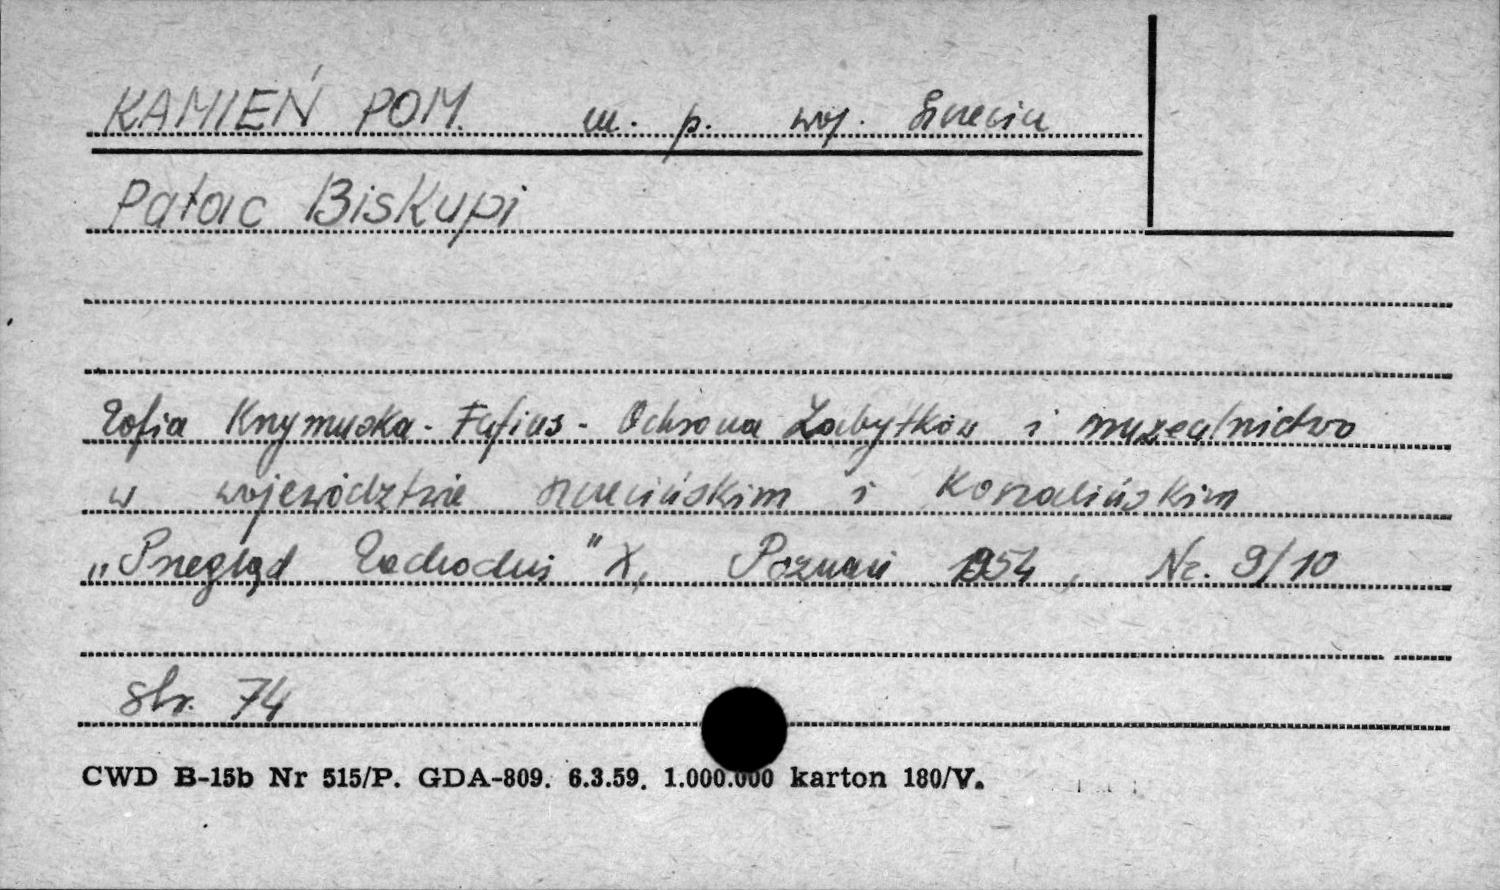 KAMIEŃ POM. m. p. woj. Szczecin
Pałac Biskupi
Zofia Krzymuska-Fafius - Ochrona Zabytków i muzealnictwo
w województwie szczecińskim i Koszalińskim
„Przegląd Zachodni" X, Poznań 1954, Nr. 9/10
str. 74
CWD B-15b Nr 515/P. GDA-809. 6.3.59. 1.000.000 karton 180/V.